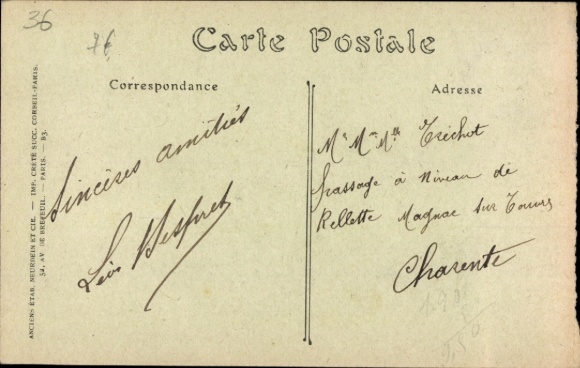 36
76
Carte Postale
Correspondance
Adresse
Sincères amitiés
Léo
Mr Mme Mlle Tréchot
passage à Niveau de
Rellette Magnac sur Touvre
Charente
ANCIENS ÉTAB. NEURDEIN ET CIE. — IMP. CRÉTÉ SUCC. CORBEIL-PARIS.
52, AV. DE BRETEUIL. — PARIS. — B3.